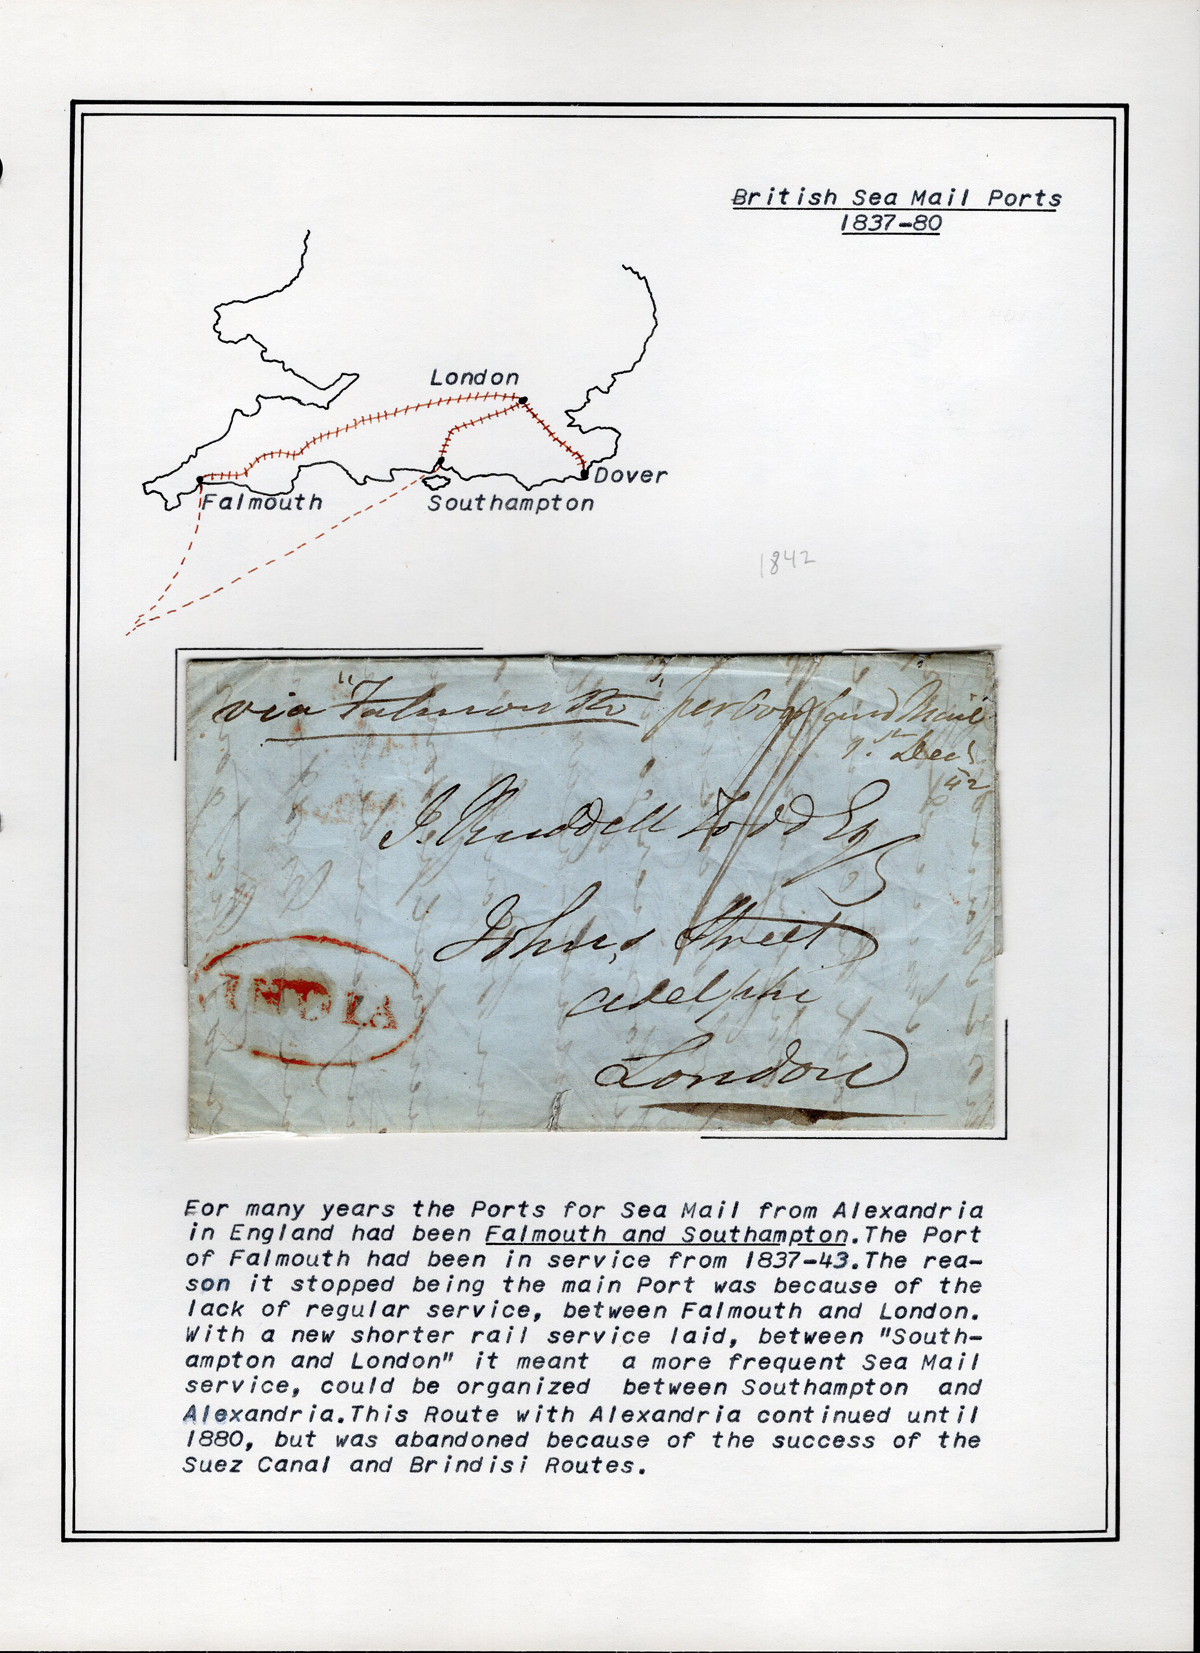 British Sea Mail Ports
1837-80
London
Dover
Falmouth
Southampton
1842
via "Falmouth" per Overland Mail
1st Decr
42
J. Ruddell Todd Esq
John's Street
Adelphi
London
INDIA
For many years the Ports for Sea Mail from Alexandria
in England had been Falmouth and Southampton.The Port
of Falmouth had been in service from 1837-43.The rea-
son it stopped being the main Port was because of the
lack of regular service, between Falmouth and London.
With a new shorter rail service laid, between "South-
ampton and London" it meant a more frequent Sea Mail
service, could be organized between Southampton and
Alexandria.This Route with Alexandria continued until
1880, but was abandoned because of the success of the
Suez Canal and Brindisi Routes.